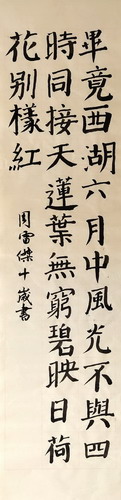 畢竟西湖六月中風光不與四
時同接天蓮葉無窮碧映日荷
花别樣紅
周雷傑十歲書